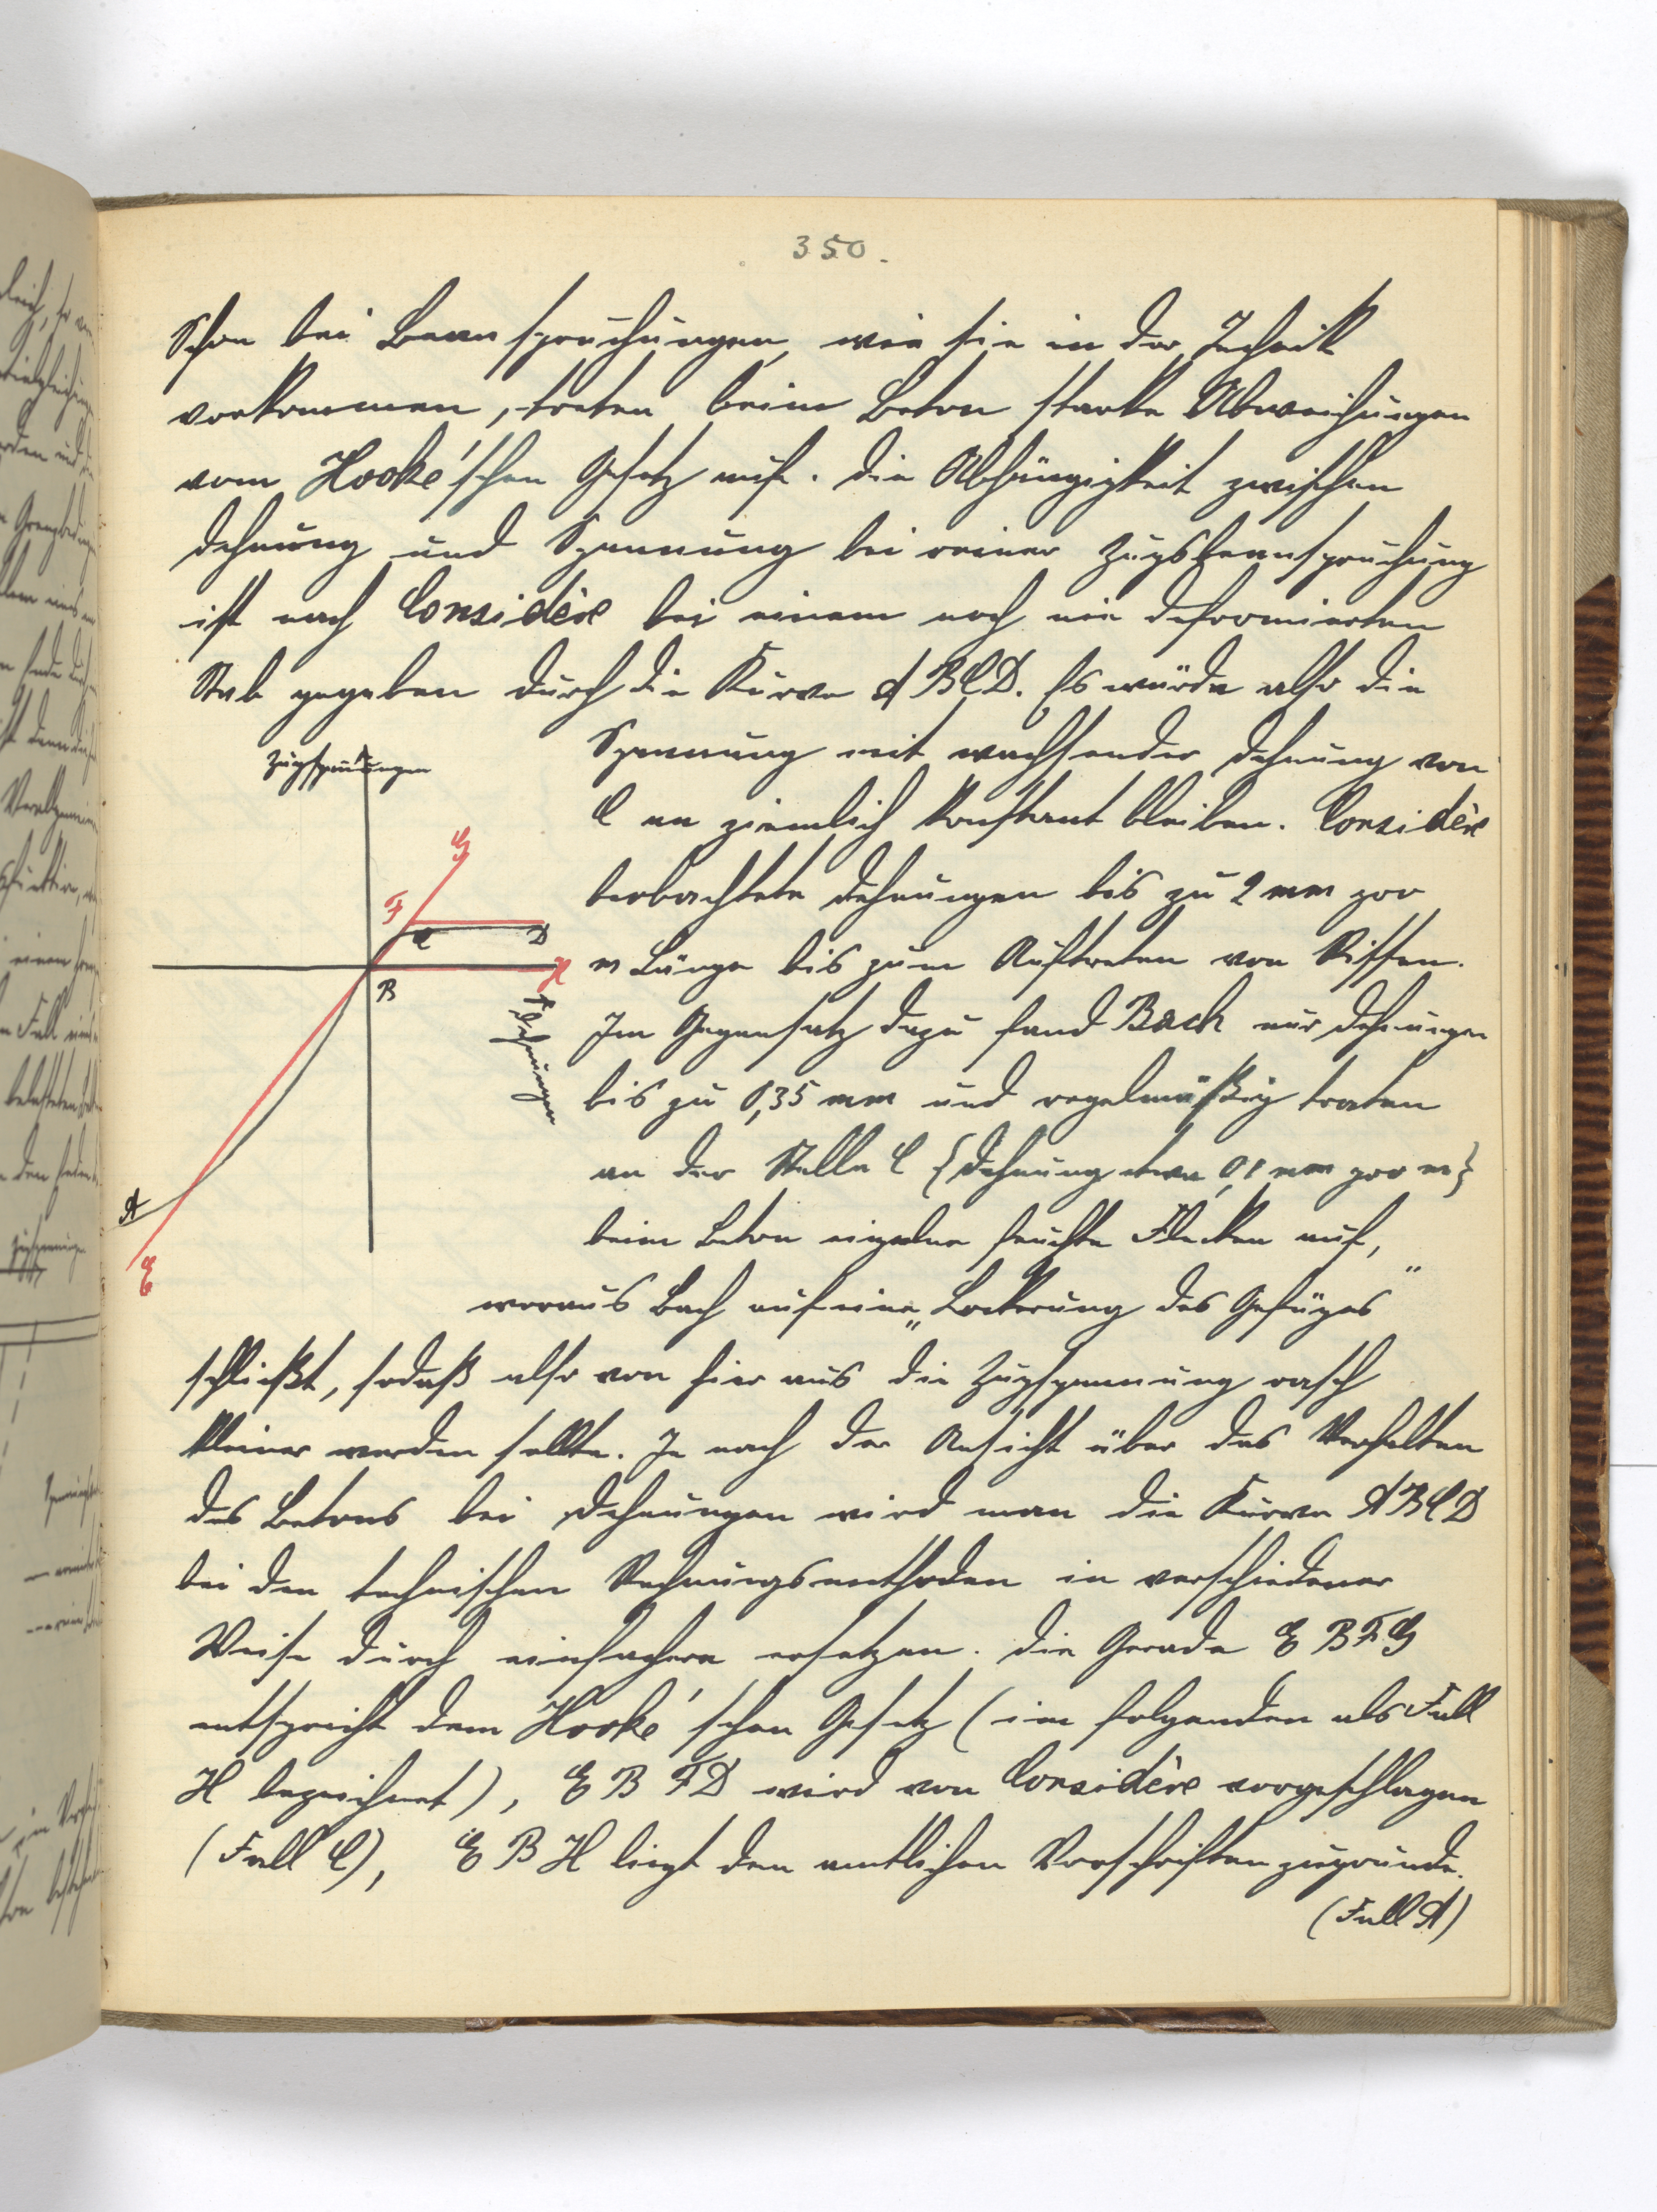 350.
Schon bei Beanspruchungen, wie sie in der Technik
vorkommen, treten beim Beton starke Abweichungen
vom Hooke'schen Gesetz auf. Die Abhängigkeit zwischen
Dehnung und Spannung bei reiner Zugsbeanspruchung
ist nach Considère bei einem noch nie deformierten
Stab gegeben durch die Kurve ABCD. Es würde also die
Spannung mit wachsender Dehnung von
C an ziemlich konstant bleiben. Considère
beobachtete Dehnungen bis zu 2 mm pro
m Länge bis zum Auftreten von Rissen.
Im Gegensatz dazu fand Bach nur Dehnungen
bis zu 0,35 mm und regelmäßig traten
an der Stelle C {Dehnung etwa 0,1 mm pro m}
beim Beton einzelne feuchte Flecken auf,
woraus Bach auf eine „Lockerung des Gefüges"
schließt, sodaß also von hier aus die Zugspannung rasch
kleiner werden sollte. Je nach der Ansicht über das Verhalten
des Betons bei Dehnungen wird man die Kurve ABCD
bei den technischen Rechnungsmethoden in verschiedener
Weise durch einfachere ersetzen. Die Gerade EBFG
entspricht dem Hooke'schen Gesetz (im folgenden als Fall
H bezeichnet), EBFD wird von Considère vorgeschlagen
(Fall C), EBH liegt den amtlichen Vorschriften zugrunde.
(Fall A)
Zugspannungen
G
F
C
D
H
B
Dehnungen
A
E